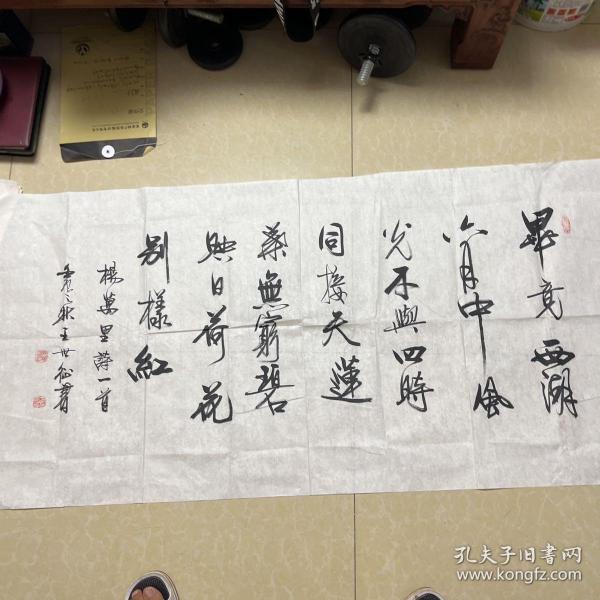 畢竟西湖
六月中風
光不與四時
同接天蓮
葉無窮碧
映日荷花
別樣紅
楊萬里詩一首
之秋王世征書
孔夫子旧书网
www.kongfz.com